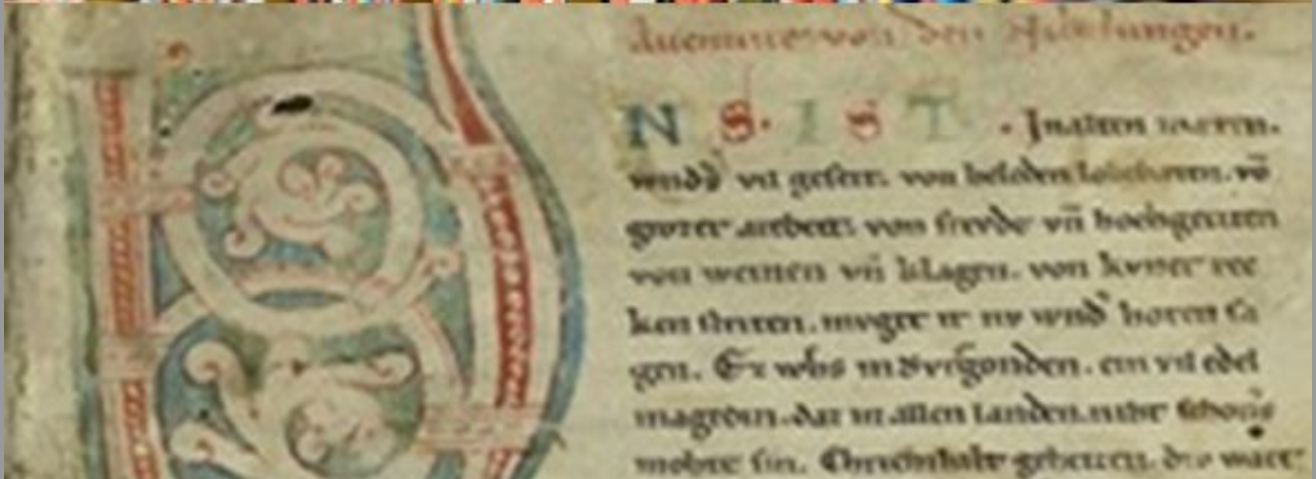 Auenture von den Nibelungen.
N S. I S T. In alten mæren.
wnds vil geseit. von heleden lobebæren. võ
grozer arebeit. von frevde vñ hochgeciten
von weinen vñ klagen. von kvner rec
ken striten. mvget ir nv wnd' horen sa
gen. Ez whs in Bvregonden. ein vil edel
magedin. daz in allen landen. niht schoners
mohte sin. Chriemhilt geheizen. div wart